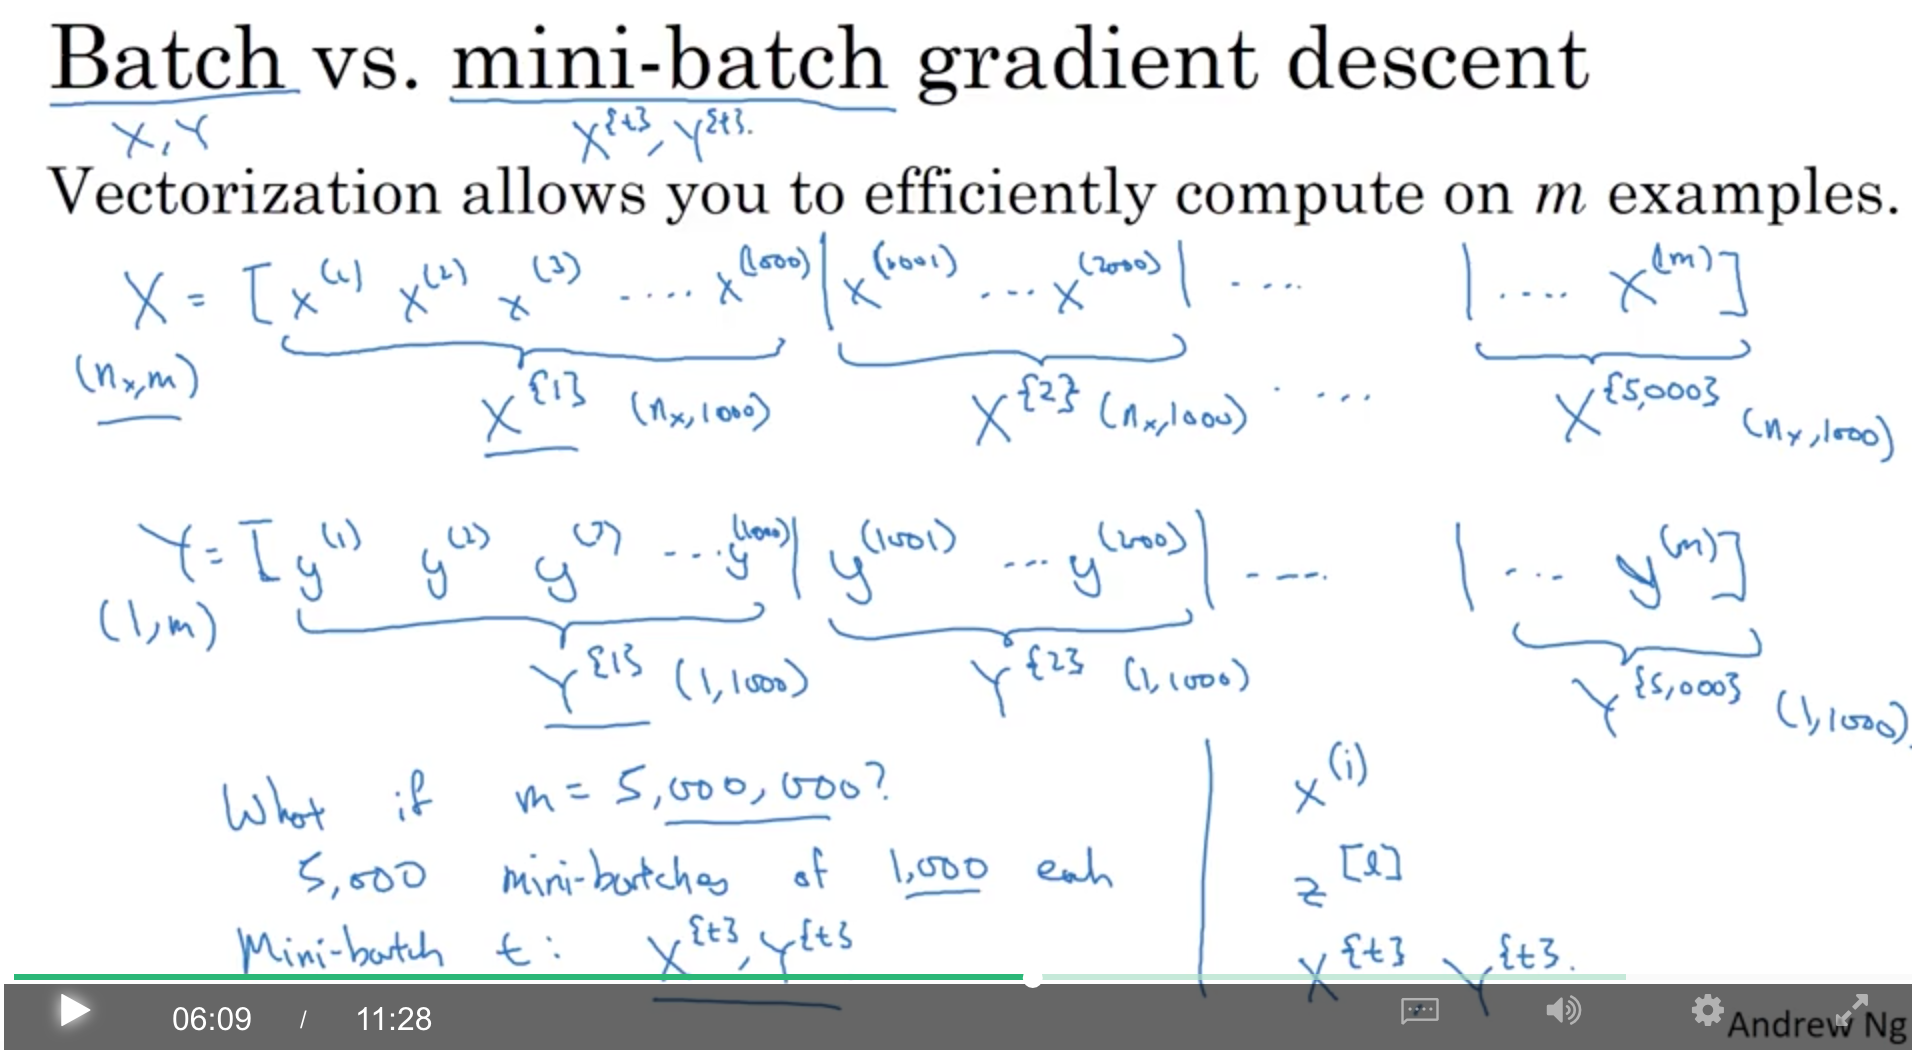 Batch vs. mini-batch gradient descent
X, Y X^{t}, Y^{t}.
Vectorization allows you to efficiently compute on m examples.
X = [x^(1) x^(2) x^(3) .... x^(1000) | x^(1001) ... x^(2000) | .... | .... x^(m)]
(n_x, m) X^{1} (n_x, 1000) X^{2} (n_x, 1000) .... X^{5,000} (n_x, 1000)
Y = [y^(1) y^(2) y^(3) ... y^(1000) | y^(1001) ... y^(2000) | .... | ... y^(m)]
(1, m) Y^{1} (1, 1000) Y^{2} (1, 1000) Y^{5,000} (1, 1000).
What if m = 5,000,000?
5,000 mini-batches of 1,000 each
Mini-batch t: X^{t}, Y^{t}
x^(i)
z^[l]
X^{t} Y^{t}.
06:09 / 11:28
Andrew Ng